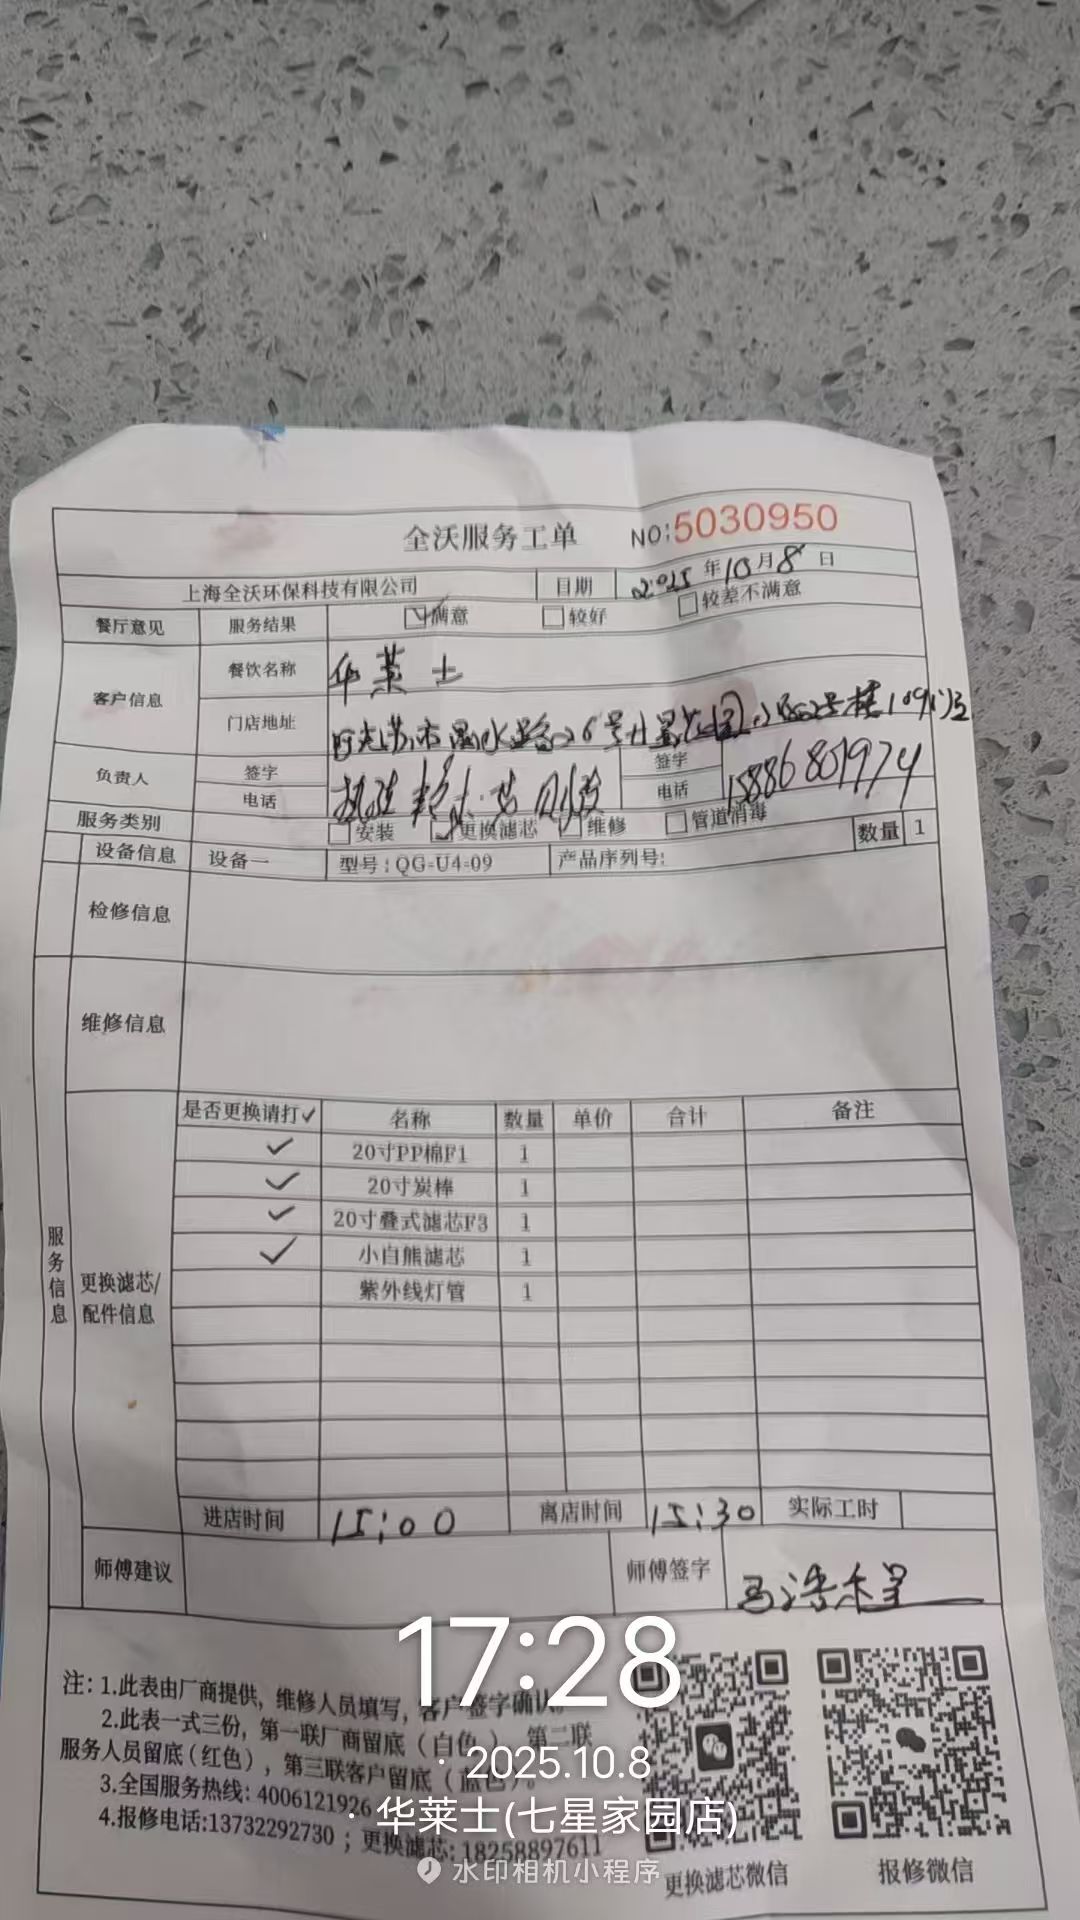 全沃服务工单 NO:5030950
上海全沃环保科技有限公司 日期 2025年10月8日
餐厅意见 服务结果 满意 较好 较差不满意
客户信息 餐饮名称 华莱士
门店地址 市温水路26号七星花园 2号楼109门
负责人 签字 签字
电话 电话 15886801974
服务类别 安装 更换滤芯 维修 管道消毒
设备信息 设备一 型号:QG-U4-09 产品序列号: 数量 1
检修信息
维修信息
服务信息
更换滤芯/配件信息
是否更换请打✓ 名称 数量 单价 合计 备注
✓ 20寸PP棉F1 1
✓ 20寸炭棒 1
✓ 20寸叠式滤芯F3 1
✓ 小白熊滤芯 1
紫外线灯管 1
进店时间 15:00 离店时间 15:30 实际工时
师傅建议 师傅签字
注:1.此表由厂商提供,维修人员填写,客户签字确认。
2.此表一式三份,第一联厂商留底(白色),第二联
服务人员留底(红色),第三联客户留底(蓝色)。
3.全国服务热线:4006121926
4.报修电话:13732292730;更换滤芯:18258897611
更换滤芯微信 报修微信
17:28
· 2025.10.8
· 华莱士(七星家园店)
水印相机小程序